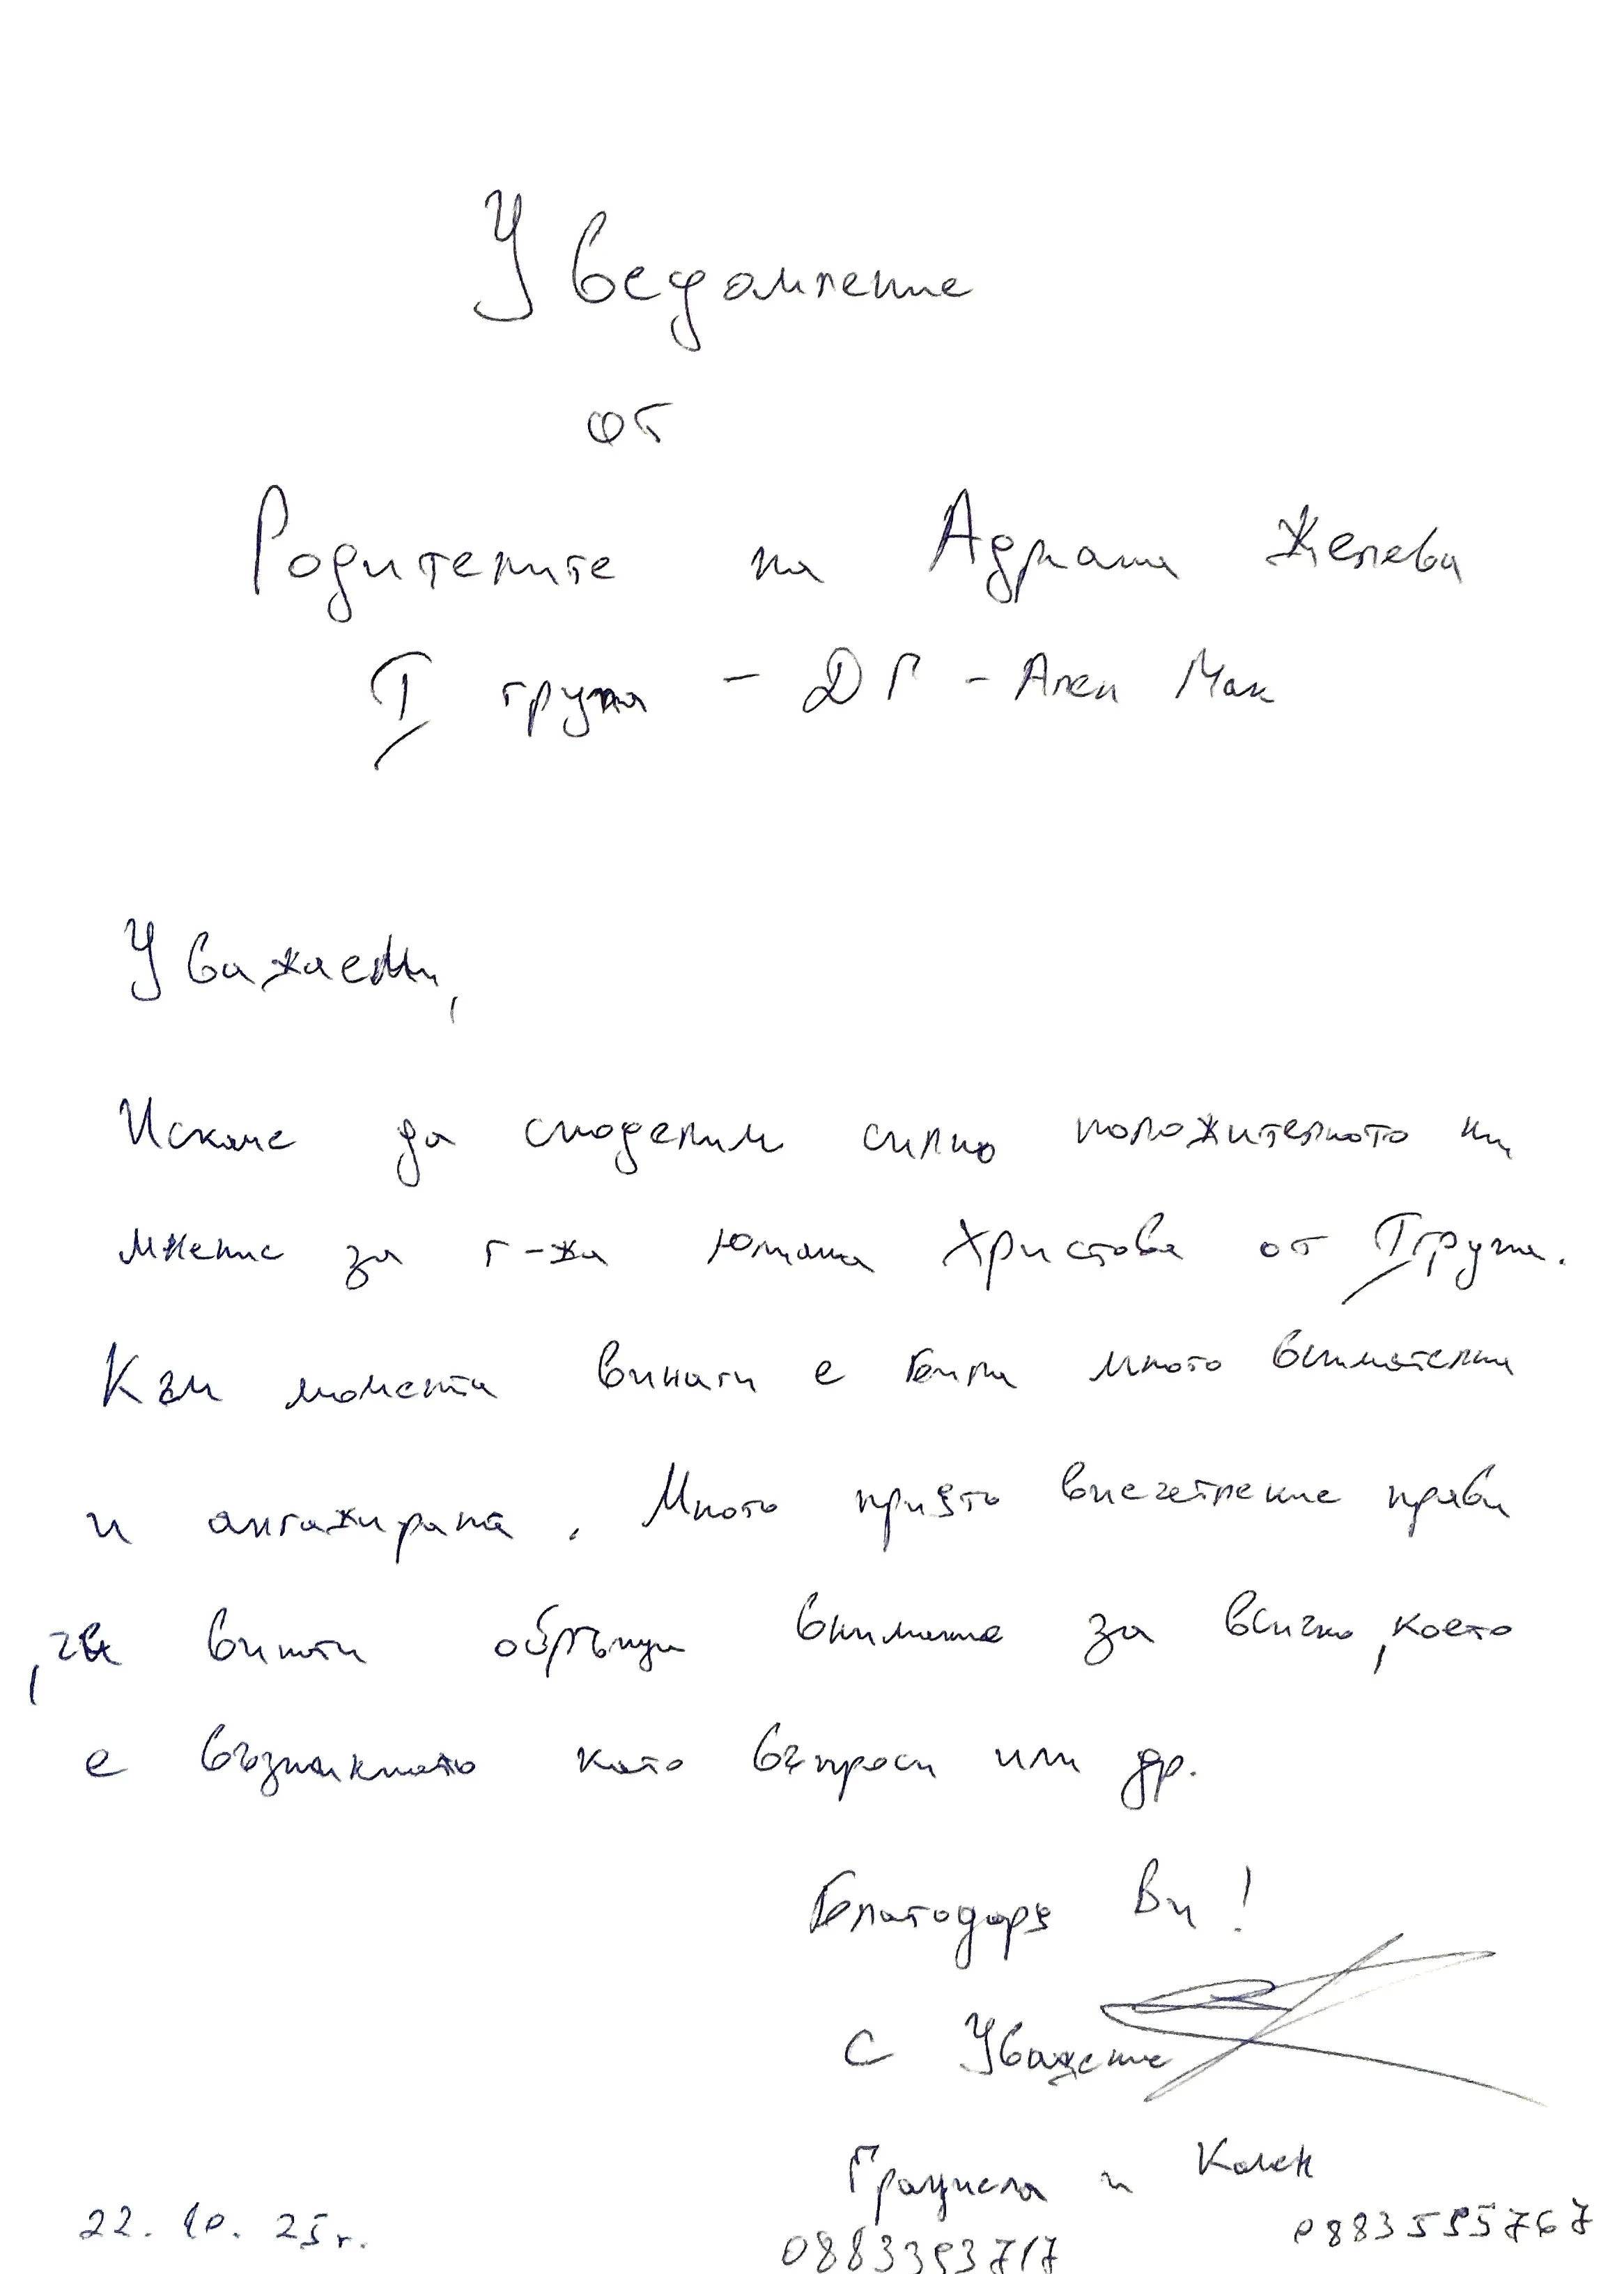 Уведомление
от
Родителите на Адриана Желева
I група - ДГ - Ален Мак
Уважаеми,
Искаме да споделим силно положителното ни
мнение за г-жа Юлиана Христова от I група.
Към момента винаги е била много внимателна
и ангажирана. Много приято впечатление прави
, че винаги обръща внимание за всичко, което
е възникнало като въпроси или др.
Благодаря Ви!
С Уважение
Грациела и Кален
22.10.25г.
0883393717
0883595767